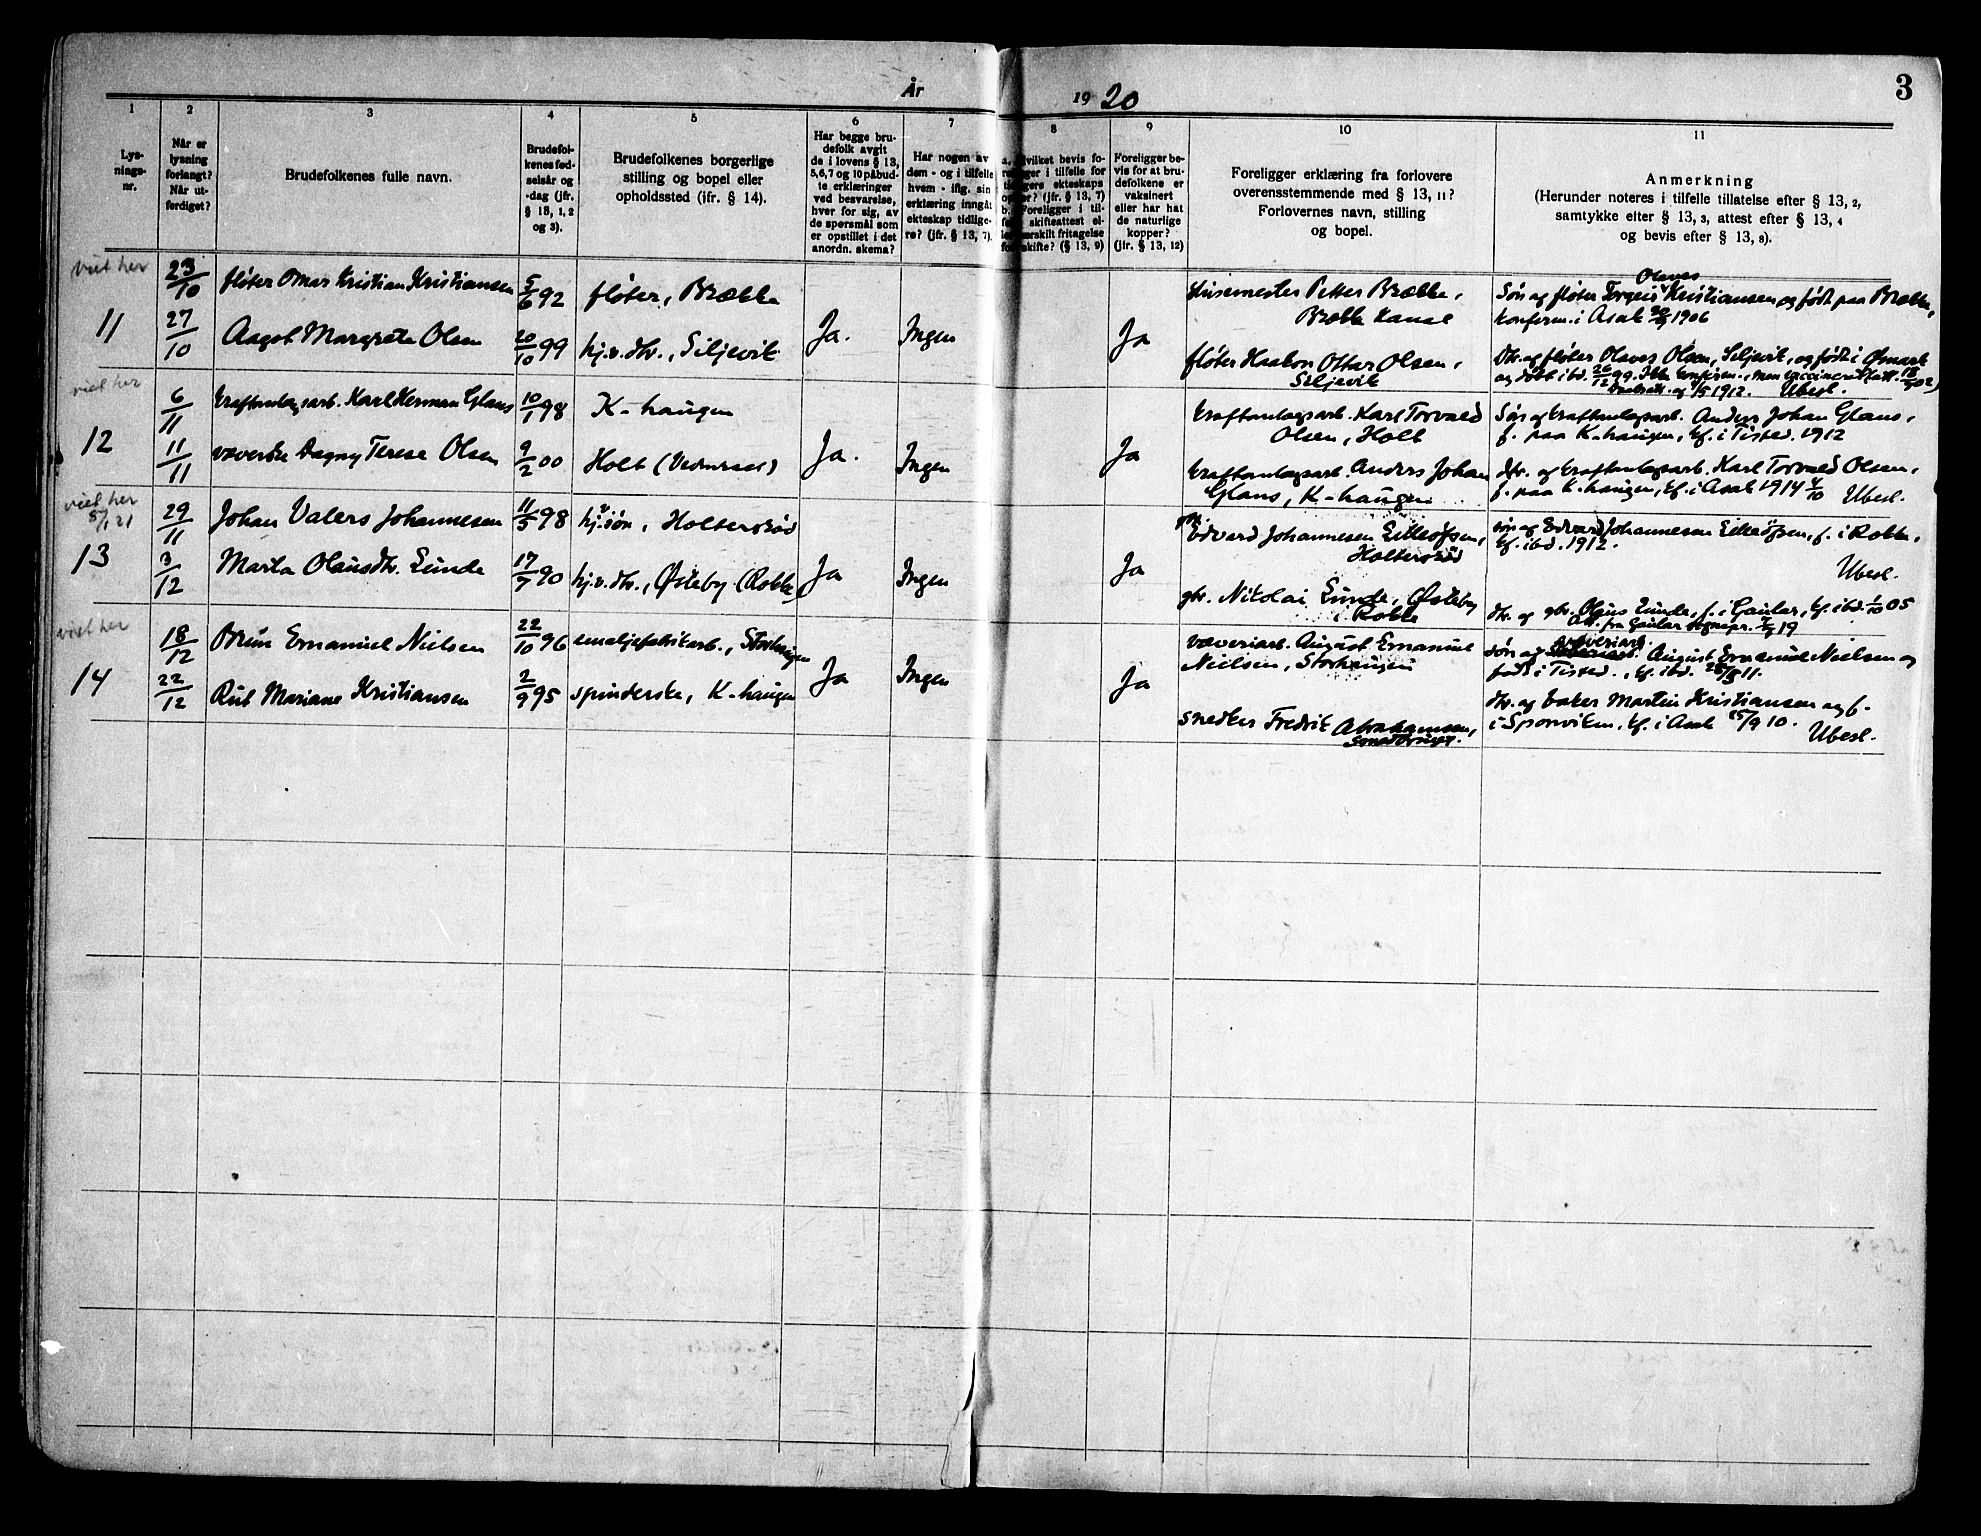 3
År
19 20
1
2
3
4
5
6
7
8
9
10
11
Lys-
nings-
nr.
Når er
lysning
forlangt?
Når ut-
ferdiget?
Brudefolkenes fulle navn.
Brudefol-
kenes fød-
selsår og
-dag (jfr.
§ 13, 1, 2
og 3).
Brudefolkenes borgerlige
stilling og bopel eller
opholdssted (jfr. § 14).
Har begge bru-
defolk avgit
de i lovens § 13,
5,6,7 og 10 påbud-
te erklæringer
ved besvarelse,
hver for sig, av
de spørsmål som
er opstillet i det
anordn. skema?
Har nogen av
dem - og i tilfelle
hvem - iflg. sin
erklæring inngåt
ekteskap tidlige-
re? (jfr. § 13, 7).
hvilket bevis fo-
ger i tilfelle for
gere ekteskaps
? (jfr. § 13, 7)
Foreligger i til-
skifteattest el-
erskilt fritagelse
skifte? (§ 13, 9)
Foreligger be-
vis for at bru-
defolkene er
vaksinert
eller har hat
de naturlige
kopper?
(jfr. § 13, 12)
Foreligger erklæring fra forlovere
overensstemmende med § 13, 11?
Forlovernes navn, stilling
og bopel.
Anmerkning
(Herunder noteres i tilfelle tillatelse efter § 13, 2,
samtykke efter § 13, 3, attest efter § 13, 4
og bevis efter § 13, 8).
viet her
11
23/10
fløter Omar Kristian Kristiansen
5/6 92
fløter, Brække
27/10
Aagot Margrete Olsen
20/10 99
hj.v. dtr., Siljevik
Ja.
Ingen
Ja
Husemester Petter Brække,
Brække Kanal
fløter Haakon Ottar Olsen,
Siljevik
Olaves
Søn ag fløter Torgeis Kristiansen og født paa Brække,
konferm. i Asak 1906
dtr. ag fløter Olaves Olsen, Siljevik, og født i Ømark
og døbt ibd. 26/12 99. Ikke konferm., men vaccineret
1912. Ubesl.
viet her
12
6/11
kraftanlagsarb. Karl Herman Glans
10/1 98
K-haugen
11/11
væverske Dagny Terese Olsen
9/2 00
Holt
Ja.
Ingen
Ja
kraftanlagsarb. Karl Torvald
Olsen, Holt
kraftanlagsarb. Anders Johan
Glans, K-haugen
Søn ag kraftanlagsarb. Anders Johan Glans,
f. paa K-haugen, kf. i Tisted. 1912
dtr. ag kraftanlagsarb. Karl Torvald Olsen,
f. paa K-haugen, kf. i Asak 1914 4/10 Ubesl.
viet her
8/1 21
13
29/11
Johan Valers Johannesen
11/5 98
hj. søn, Holtersrød
3/12
Marta Olausdtr. Lunde
17/7 90
hj.v. dtr., Østeby (Rokke)
Ja
Ingen
Ja
Edvard Johannesen
Holtersrød
gbr. Nikolai Lunde, Østeby
i Rokke
søn ag Edvard Johannesen f. i Rokke,
kf. ibd. 1912.
Ubesl.
dtr. ag gbr. Olaus Lunde, f. i Gaular, kf. ibd. 1/10 05
Att. fra Gaular sognepr. 19
viet her
14
18/12
Brun Emanuel Nielsen
22/10 96
emaljefabrikarb., Storhaugen
22/12
Rut Mariane Kristiansen
2/9 95
spinderske, K-haugen
Ja
Ingen
Ja
væveriarb. August Emanuel
Nielsen, Storhaugen
snedker Fredrik Abrahamsen,
væveriarb.
søn ag August Emanuel Nielsen og
født i Tisted., kf. ibd. 11.
dtr. ag baker Martin Kristiansen ag f.
i Sponviken, kf. i Asak 25/9 10. Ubesl.